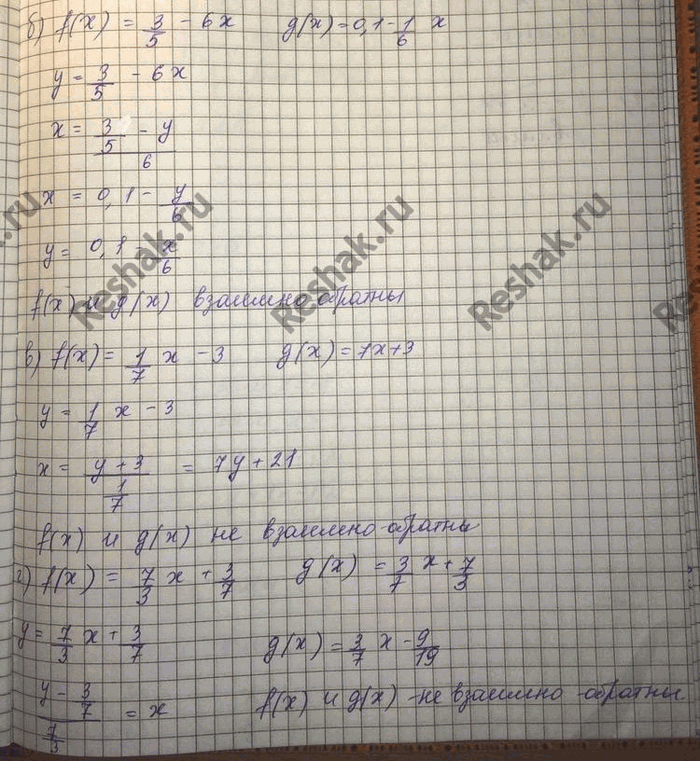 б) f(x) = 3/5 - 6x g(x) = 0,1 - 1/6 x
y = 3/5 - 6x
x = (3/5 - y)/6
x = 0,1 - y/6
y = 0,1 - x/6
f(x) и g(x) взаимно-обратны
в) f(x) = 1/7 x - 3 g(x) = 7x+3
y = 1/7 x - 3
x = (y + 3)/(1/7) = 7y + 21
f(x) и g(x) не взаимно-обратны
г) f(x) = 7/3 x + 3/7 g(x) = 3/7 x + 7/3
y = 7/3 x + 3/7 g(x) = 3/7 x - 9/19
(y - 3/7)/(7/3) = x f(x) и g(x) - не взаимно-обратны
Reshak.ru
Reshak.ru
Reshak.ru